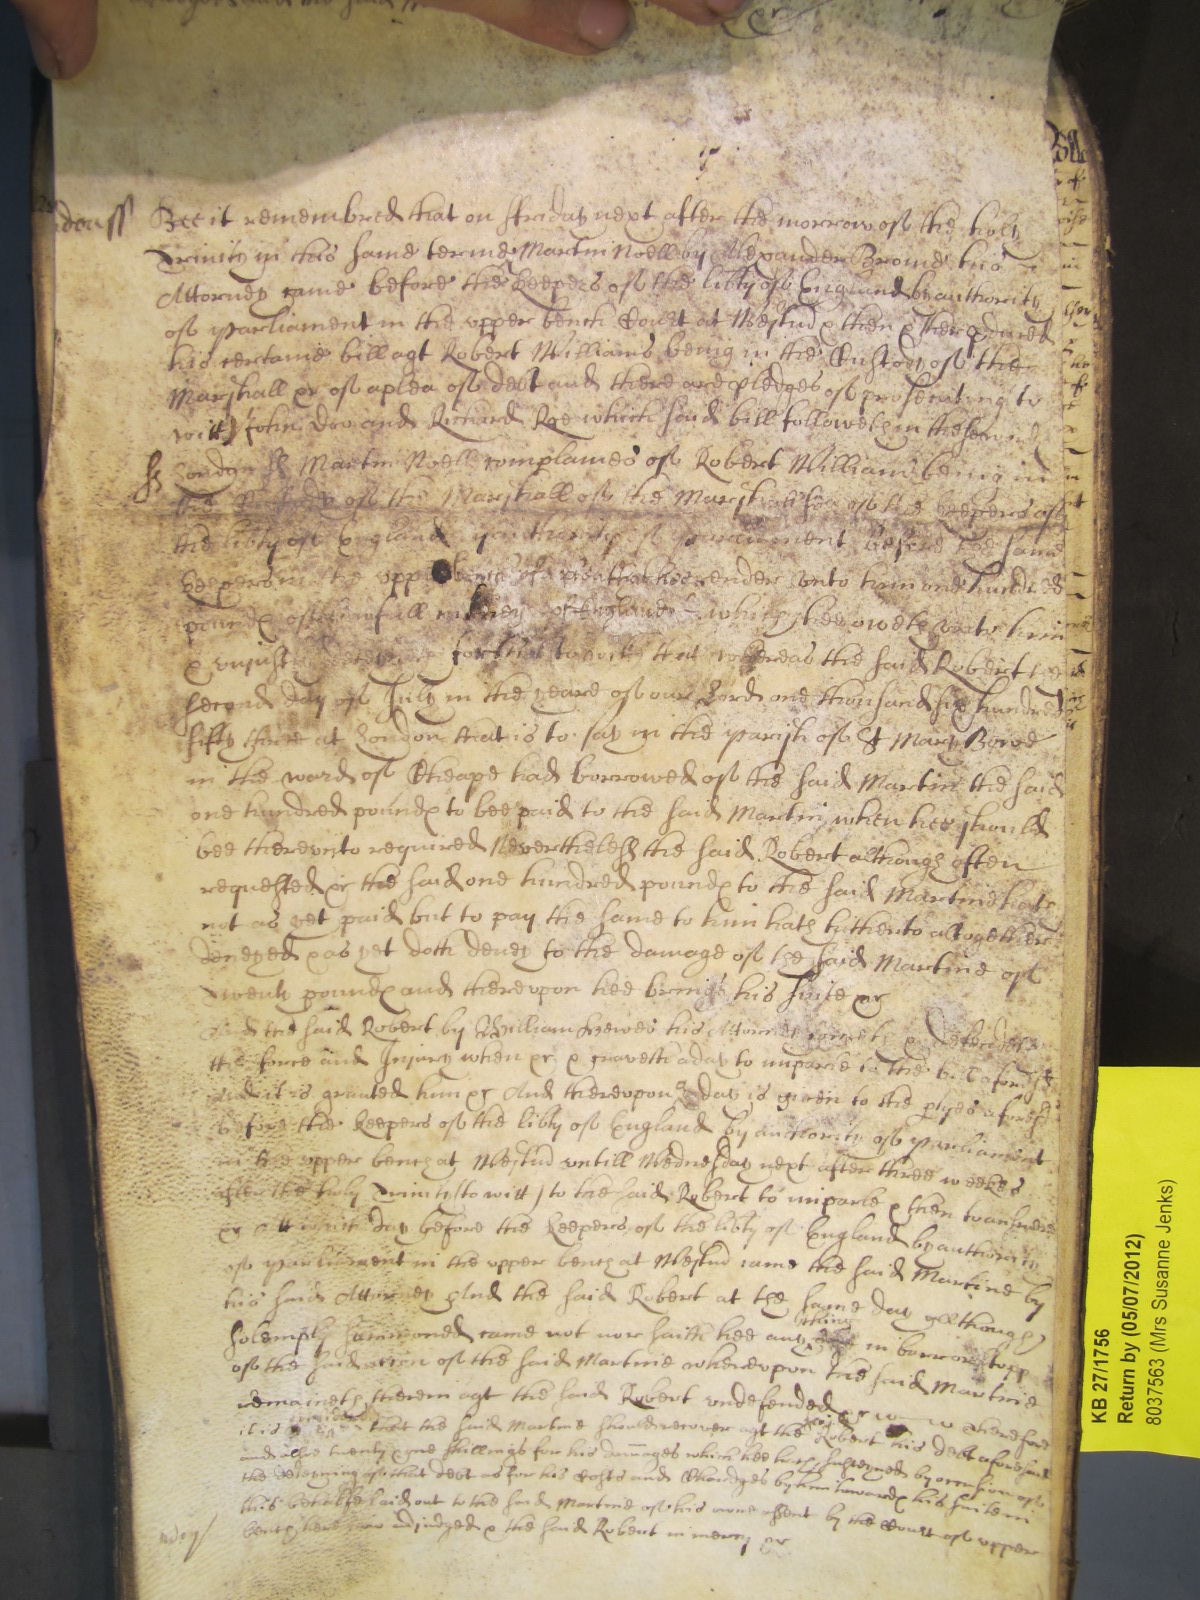 Bee it remembred that on Friday next after the morrow of the holy
Trinity in this same terme Martin Noell by Alexander Brome his
Attorney came before the Keepers of the libty of England by authority
of Parliament in the upper bench Court at Westm̃ & then & there
his certaine bill agt Robert Williams being in the Custody of the
Marshall &c of a plea of debt and there are pledges of prosecuting to
witt John Doo and Richard Roe which said bill followeth in these
ss London ss Martin Noell complaines of Robert Williams being in
the Custody of the Marshall of the Marshalsea of the keepers of
the libty of England by authority of Parliament before the same
keepers in the upp bench that hee render unto him one hundred
pounds of lawfull money of England which hee oweth unto him
& uniustly for that to witt that whereas the said Robert the
second day of July in the yeare of our Lord one thousand six hundred
fifty three at London that is to say in the parish of St Mary Bowe
in the ward of Cheape had borrowed of the said Martin the said
one hundred pounds to bee paid to the said Martin when hee should
bee thereunto required Neverthelesse the said Robert although often
requested &c the said one hundred pounds to the said Martine hath
not as yet paid but to pay the same to him hath hitherto altogether
denyed & as yet doth deney to the damage of the said Martine of
twenty pounds and thereupon hee brings his suite &c
And the said Robert by William Hewes his Attorney cometh & defendeth
the force and Iniury when &c & craveth a day to imparle to the bill aforesd
And it is granted him &c And thereupon day is given to the ptyes aforesd
before the keepers of the libty of England by authority of Parliament
in the upper bench at Westm̃ untill Wednesday next after three weekes
after the holy Trinity (to witt) to the said Robert to imparle & then to answere
&c Att which day before the keepers of the libty of England by authority
of Parliament in the upper bench at Westm̃ came the said Martine by
his said Attorney And the said Robert at the same day although
solemply came not nor saith hee any thing in barr or stopp
of the said accon of the said Martine whereupon the said Martine
remaineth therein agt the said Robert undefended &c Therefore
it is that the said Martine should recover agt the said Robert his debt aforesaid
and alsoe twenty one shillings for his damages which hee hath susteyned by occasion of
the deteyning of that debt as for his Costs and Chardges by him towards his suite in
this behalfe laid out to the said Martine of his owne assent by the Court of upper
bench here now adiudged & the said Robert in mercy &c
KB 27/1756
Return by (05/07/2012)
8037563 (Mrs Susanne Jenks)